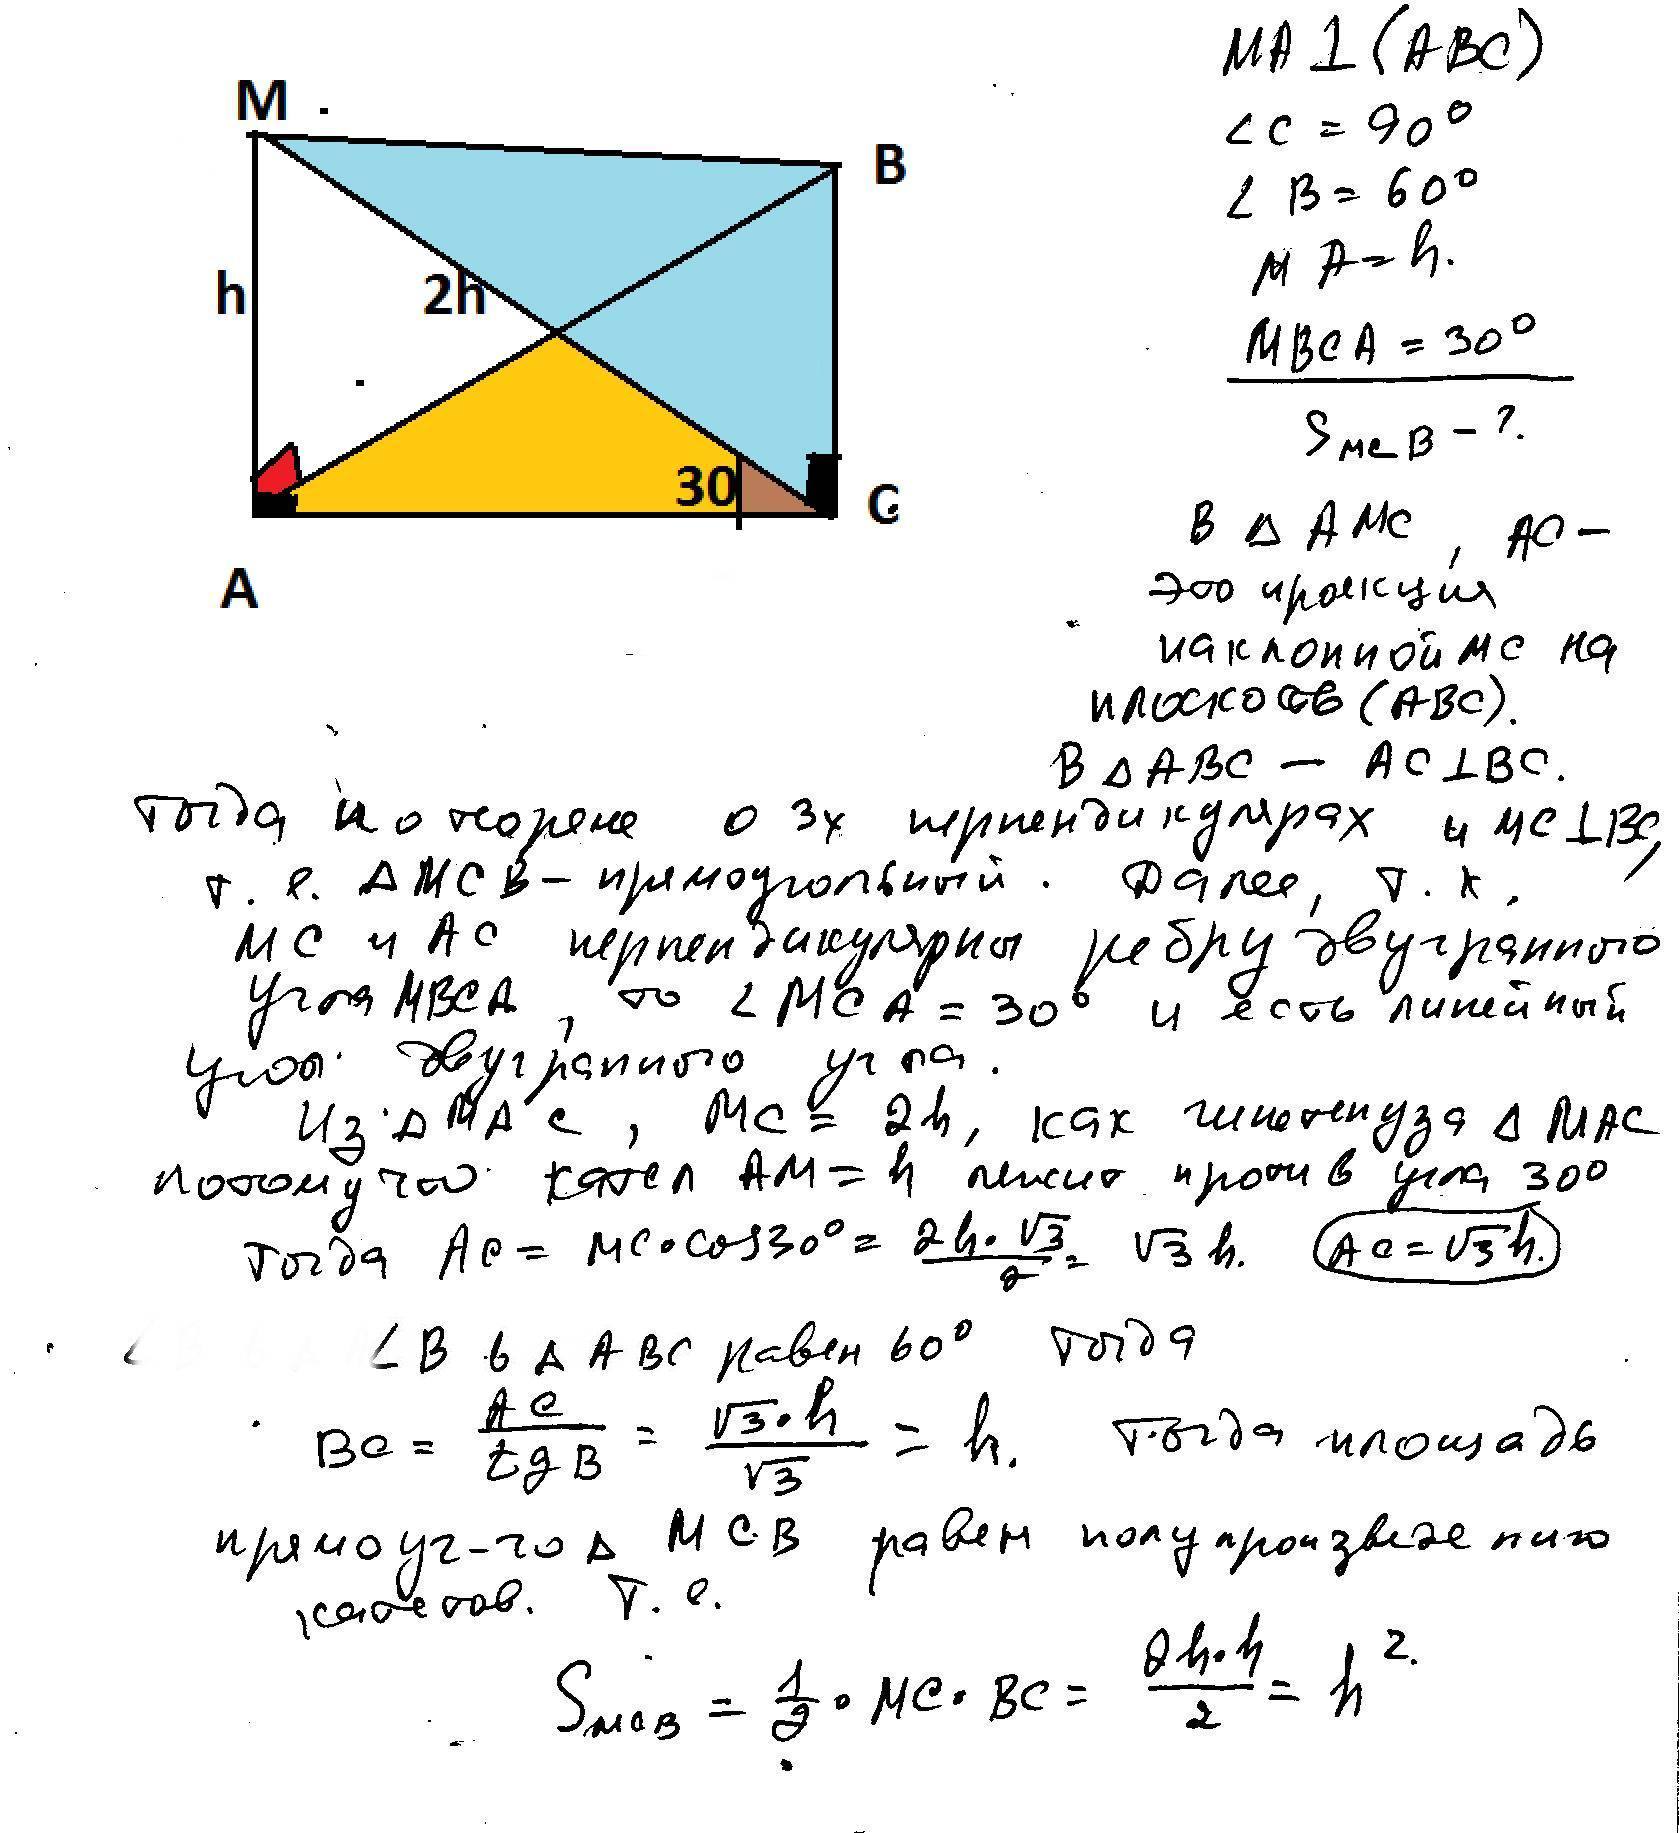 M
B
h
2h
30
C
A
MA⊥(ABC)
∠C = 90°
∠B = 60°
MA = h.
MBCA = 30°
S MCB - ?
В △ AMC, AC –
это проекция
наклонной MC на
плоскость (ABC).
В △ABC – AC⊥BC.
Тогда по теореме о 3х перпендикулярах и MC⊥BC,
т.е. △MCB – прямоугольный. Далее, т.к.
MC и AC перпендикулярны ребру двугранного
угла MBCA, то ∠MCA = 30° и есть линейный
угол двугранного угла.
Из △MAC, MC = 2h, как гипотенуза △ MAC
потому что катет AM = h лежит против угла 30°
Тогда AC = MC·cos30° = 2h·√3/2 = √3 h. AC = √3 h.
∠B в △ ABC равен 60° тогда
BC = AC/tgB = √3·h/√3 = h. Тогда площадь
прямоуг-го △ MCB равен полупроизведению
катетов. Т.е.
S MCB = 1/2 · MC · BC = 2h·h/2 = h².